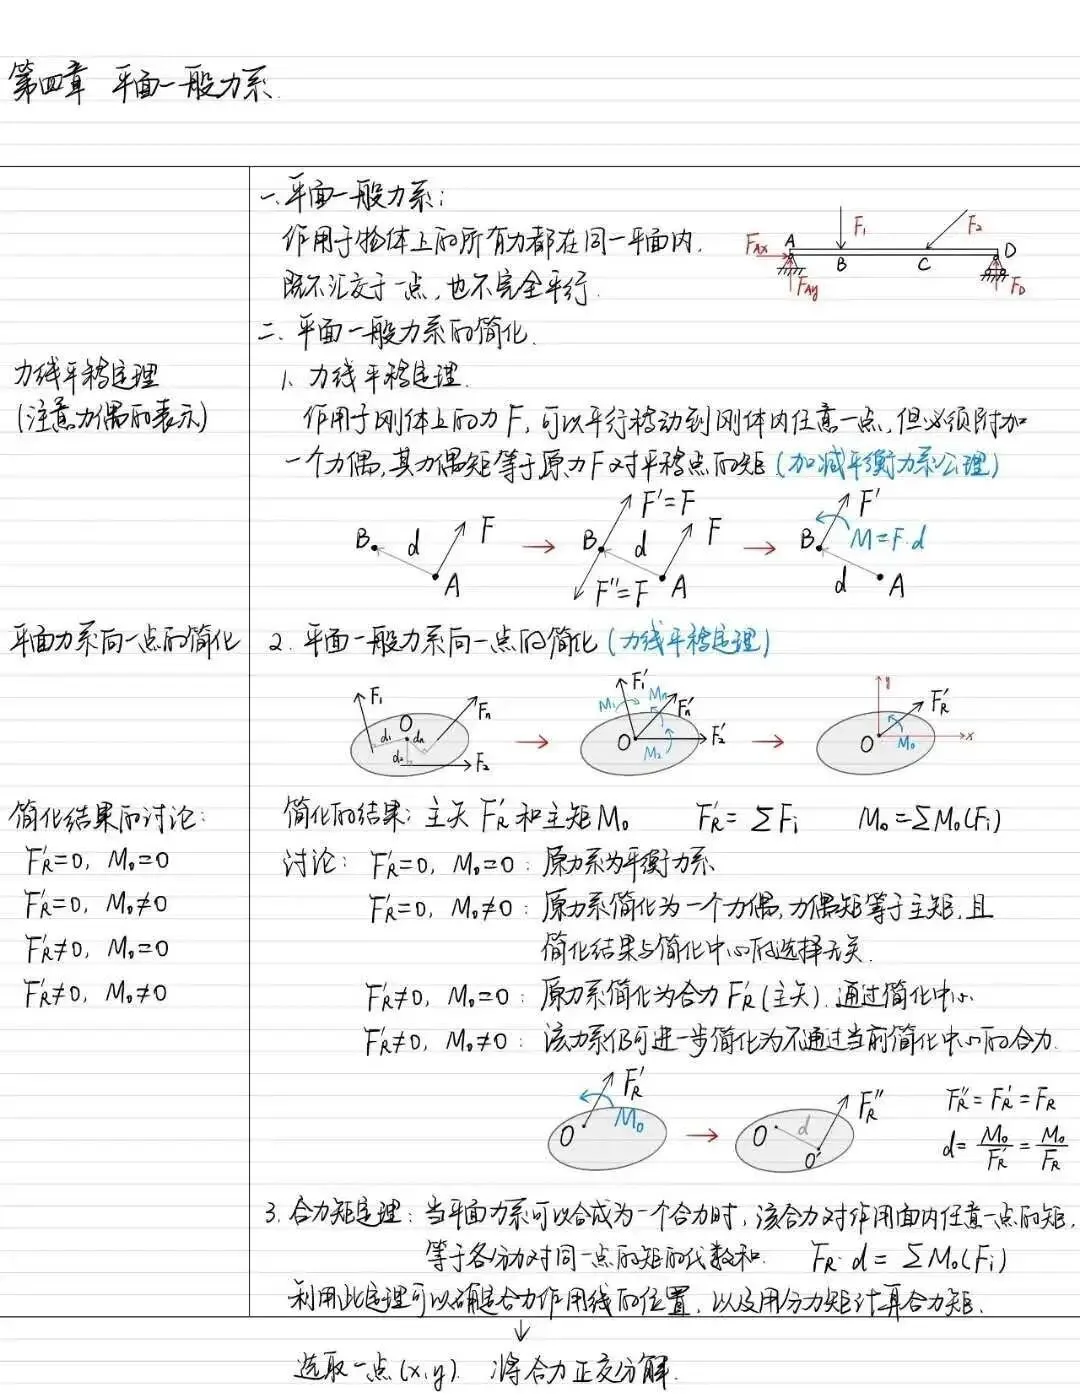 第四章 平面一般力系.
一.平面一般力系:
作用于物体上的所有力都在同一平面内.
既不汇交于一点,也不完全平行.
F_Ax A F₁ F₂ B C D F_Ay F_D
二. 平面一般力系的简化.
力线平移定理
(注意力偶的表示)
1、力线平移定理.
作用于刚体上的力F,可以平行移动到刚体内任意一点,但必须附加
一个力偶,其力偶矩等于原力F对平移点的矩(加减平衡力系公理)
B d F A → B F'=F d F F''=F A → B F' M=F·d d A
平面力系向一点的简化
2. 平面一般力系向一点的简化(力线平移定理)
F₁ O d₁ dₙ d₂ Fₙ F₂ → F₁' M₁ Mₙ Fₙ' O M₂ F₂' → y F'_R O M₀ x
简化结果的讨论:
F'_R=0, M₀=0
F'_R=0, M₀≠0
F'_R≠0, M₀=0
F'_R≠0, M₀≠0
简化的结果: 主矢F'_R和主矩M₀ F'_R=ΣFi M₀=ΣM₀(Fi)
讨论: F'_R=0, M₀=0: 原力系为平衡力系
F'_R=0, M₀≠0: 原力系简化为一个力偶,力偶矩等于主矩,且
简化结果与简化中心的选择无关.
F'_R≠0, M₀=0: 原力系简化为合力F'_R(主矢).通过简化中心
F'_R≠0, M₀≠0: 该力系仍可进一步简化为不通过当前简化中心的合力.
O F'_R M₀ → O d O' F''_R
F''_R=F'_R=F_R
d=M₀/F'_R=M₀/F_R
3.合力矩定理: 当平面力系可以合成为一个合力时,该合力对作用面内任意一点的矩,
等于各分力对同一点的矩的代数和. F_R·d=ΣM₀(Fi)
利用此定理可以确定合力作用线的位置,以及用分力矩计算合力矩.
↓
选取一点(x,y). 将合力正交分解.